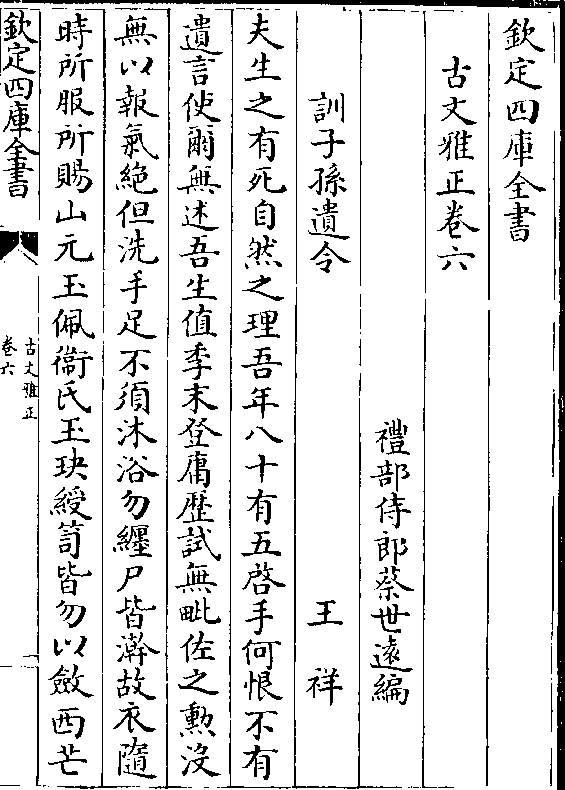 欽定四庫全書
古文雅正卷六
禮部侍郎蔡世遠編
訓子孫遺令
王祥
夫生之有死自然之理吾年八十有五啓手何恨不有
遺言使爾無述吾生值季末登庸歷試無毗佐之勲沒
無以報氣絶但洗手足不須沐浴勿纏尸皆澣故衣隨
時所服所賜山元玉佩衞氏玉玦綬笥皆勿以斂西芒
欽定四庫全書
古文雅正
卷六
一